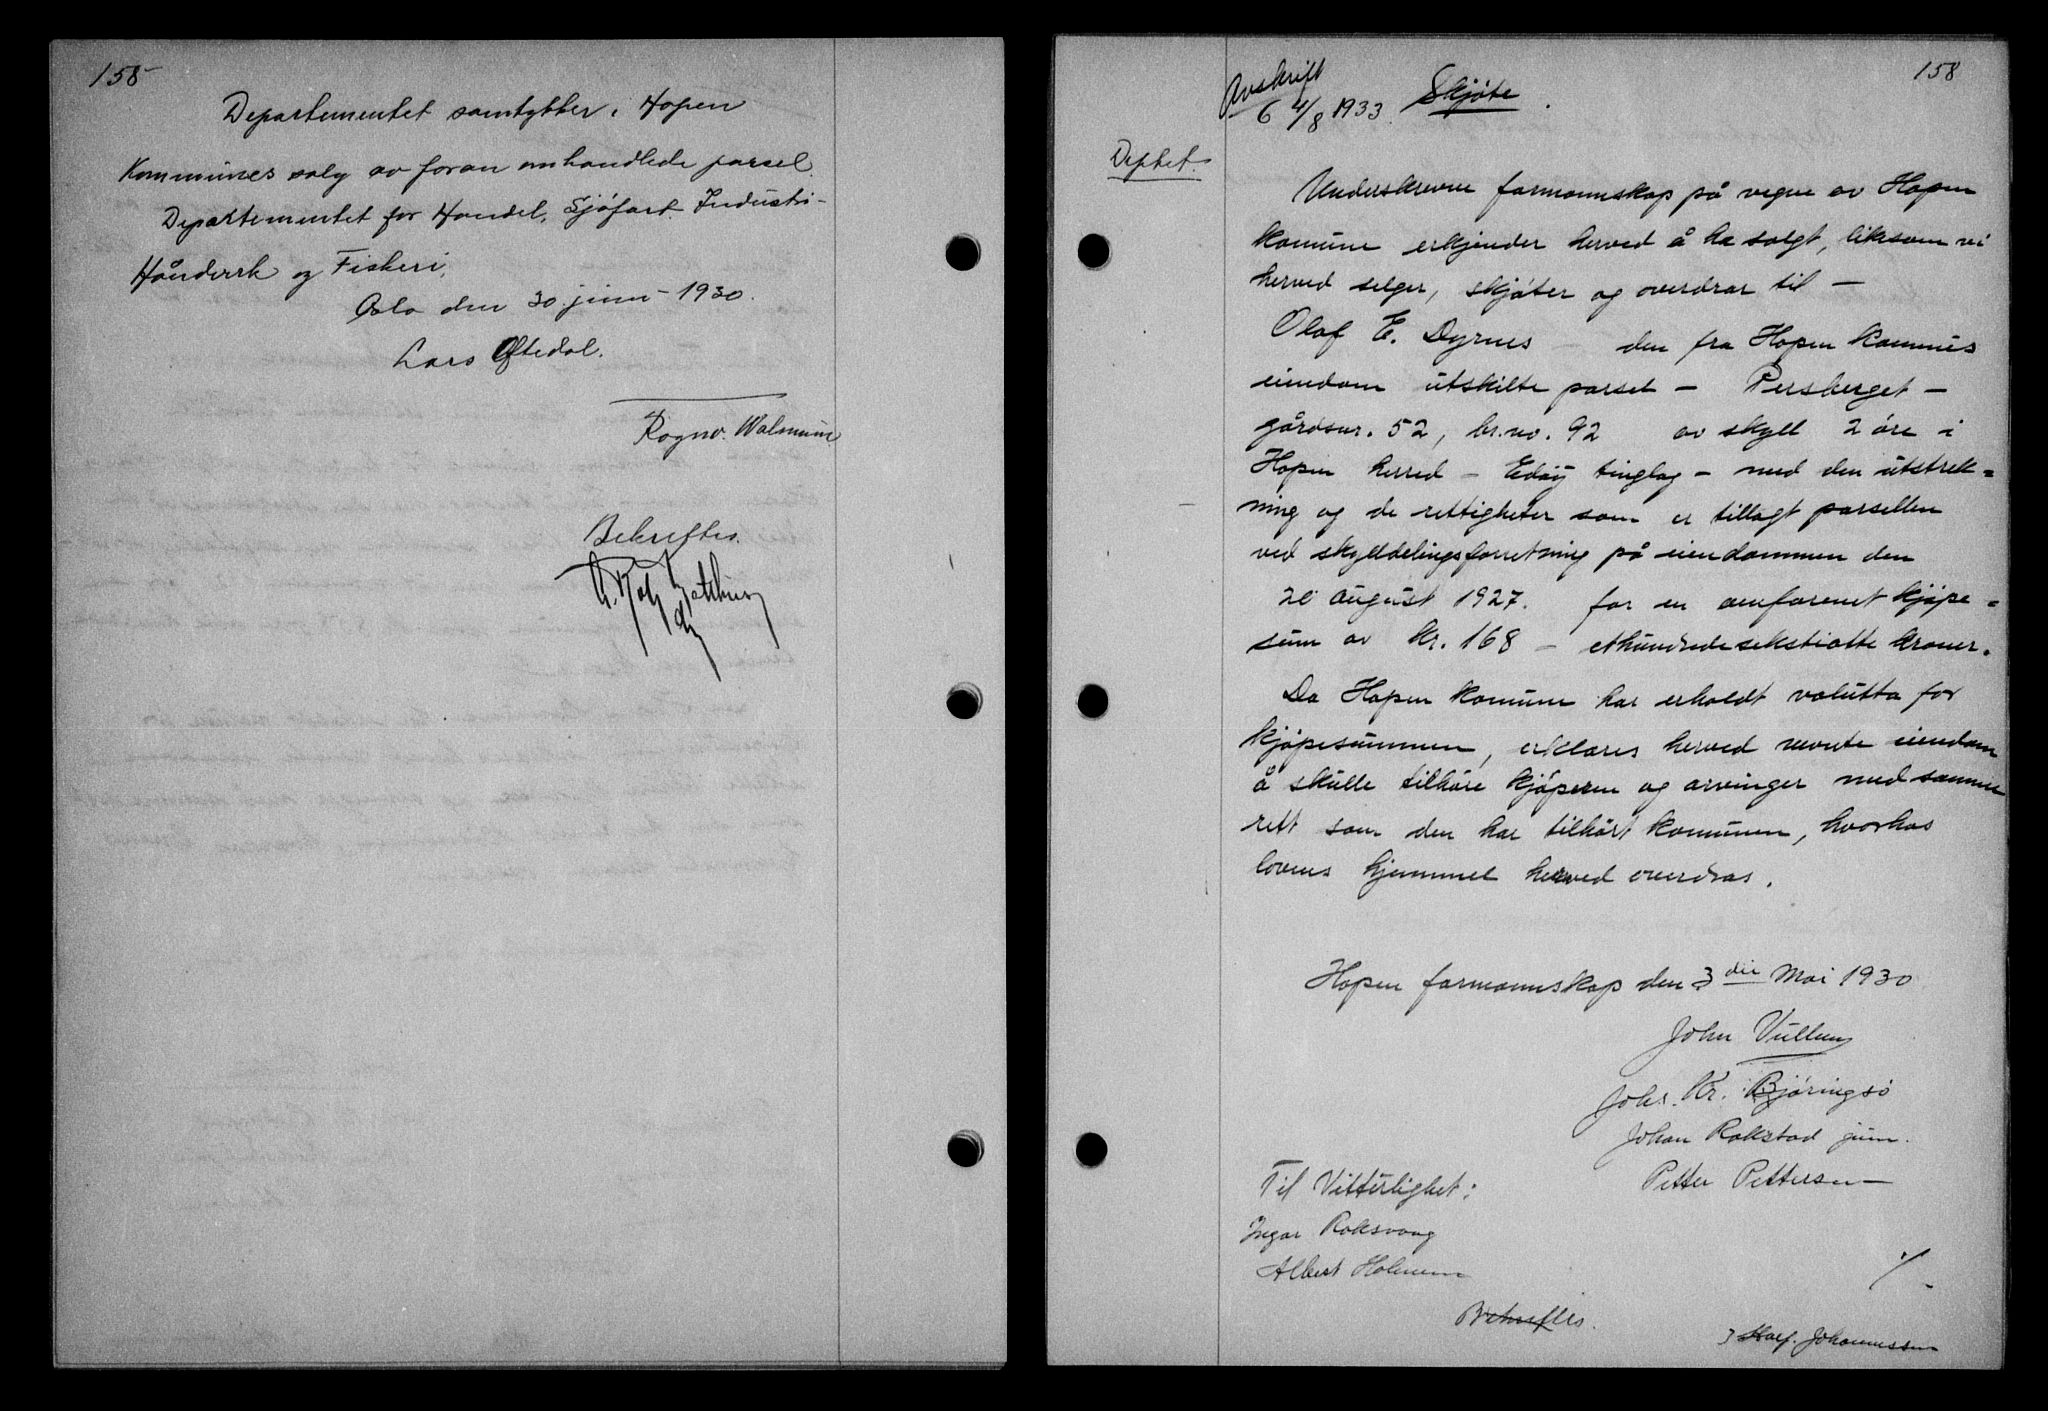 158
Departementet samtykker i Hopen
Kommunes salg av foran omhandlede parsel.
Departementet for Handel, Sjøfart, Industri-
Håndverk og Fiskeri,
Oslo den 30. juni - 1930.
Lars Oftedal.
Rogno. Walmum
Bekreftes.
158
Avskrift
6 4/8 1933.
Skjøte.
Dephet.
Underskrevne formannskap på vegne av Hopen
komune erkjender herved å ha solgt, liksom vi
herved selger, skjøter og overdrar til -
Olaf E. Dyrnes - den fra Hopen kommunes
eiendom utskilte parsel - Persberget -
gårdsnr. 52, br.no. 92 av skyld 2 øre i
Hopen herred - Edøy tinglag - med den utstrek=
ning og de rettigheter som er tillagt parsellen
ved skylddelingsforretning på eiendommen den
20 august 1927. for en omforenet kjøpe=
sum av kr. 168 - ethundredesekstiotte kroner.
Da Hopen komune har erholdt valutta for
kjøpesummen, erklæres herved nevnte eiendom
å skulle tilhøre kjøperen og arvinger med samme
rett som den har tilhørt komunen, hvorhos
lovens hjemmel herved overdras.
Hopen formannskap den 3die Mai 1930
John Vullum
Johs. Kr. Bjøringsø
Johan Rokstad jun.
Petter Pettersen
Til Vitterlighet:
Ingar Roksvaag
Albert Holmen
Bekreftes.
Johannessen